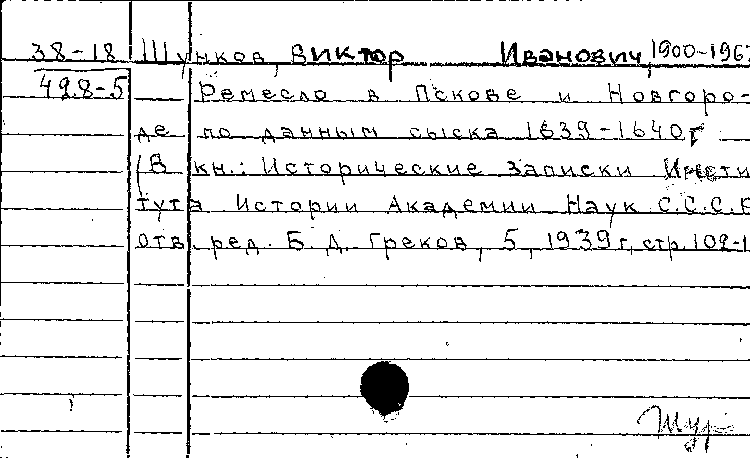 38-18 Шунков, Виктор Иванович, 1900-196
498-5 Ремесло в Пскове и Новгоро-
де по данным сыска 1639-1640г
(В кн.: Исторические Записки Инсти
тута Истории Академии Наук С.С.С.Р
отв. ред. Б. Д. Греков, 5, 1939 г, стр. 102-1
Шур